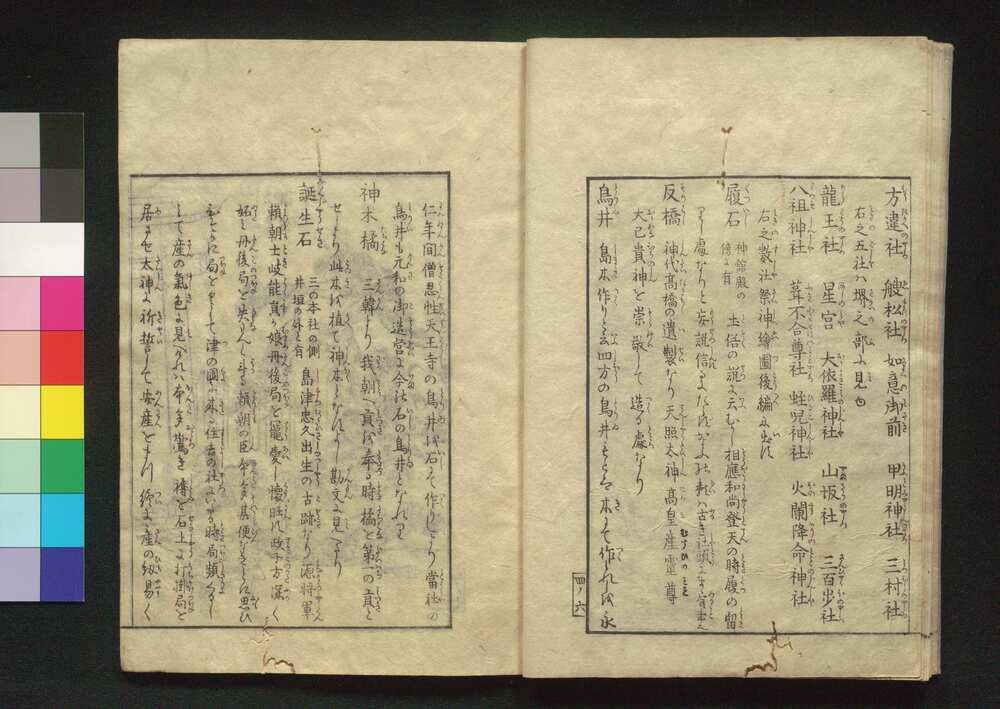 方違社 艘松社 如意御前 甲明神社 三村社
右之五社ハ堺之部ニ見ゆ
龍王社 星宮 大依羅神社 山坂社 三百歩社
八祖神社 葺不合尊社 蛭児神社 火闌降命神社
右之数社祭神繪圖後編に出す
履石 神館殿の傍に有 土俗の説に云むかし相應和尚登天の時履の留
りし處なりと
反橋 神代高橋の遺製なり天照太神高皇産霊尊
大己貴神を崇敬して造る處なり
鳥井 島本作りと云四方の鳥井もとは木にて作れるを永
仁年間僧忍性天王寺の鳥井を石にて作りしより當社の
鳥井も元和の御造営に今社石の鳥井となれり
神木橘 三韓より我朝へ貢を奉る時橘を第一の貢と
せしより此木を植て神木となすよし勘文に見へたり
誕生石 三の本社の側井垣の外に有 島津忠久出生の古跡なり源将軍
頼朝士岐能員が娘丹後局を寵愛し懐胎に政子方深く
妬ミ丹後局を失ハんとす頼朝の臣本多其便なきを思ひ
ひそかに局をともして津の國に来り住吉の社にいたる時局頻にし
して産の氣色に見へけれハ本多驚き 石上に打掛局を
居させ太神に祈誓して安産をまつり 産の紐易く